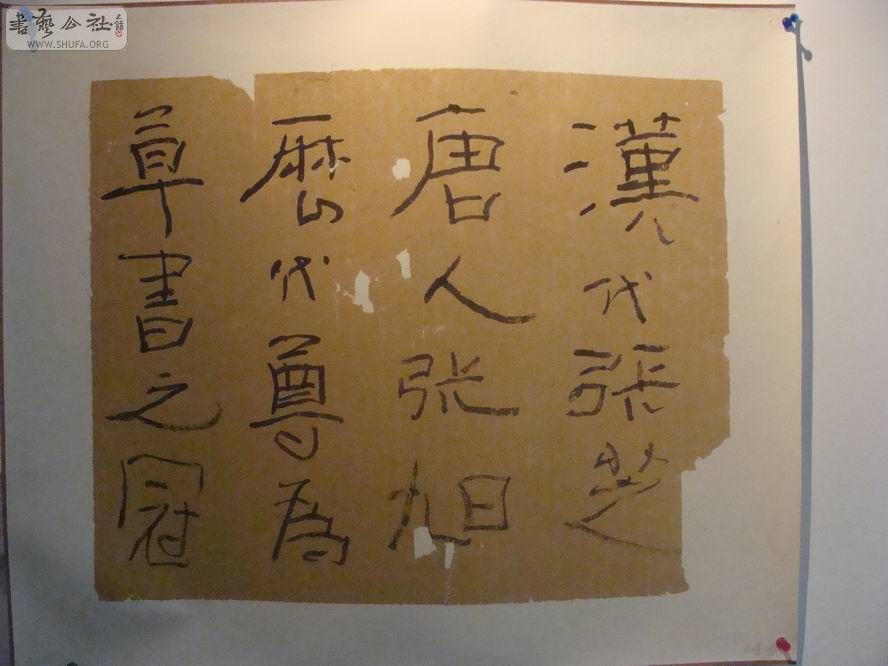 漢代張芝
唐人张旭
歷代尊為
草書之冠
書藝公社
WWW.SHUFA.ORG